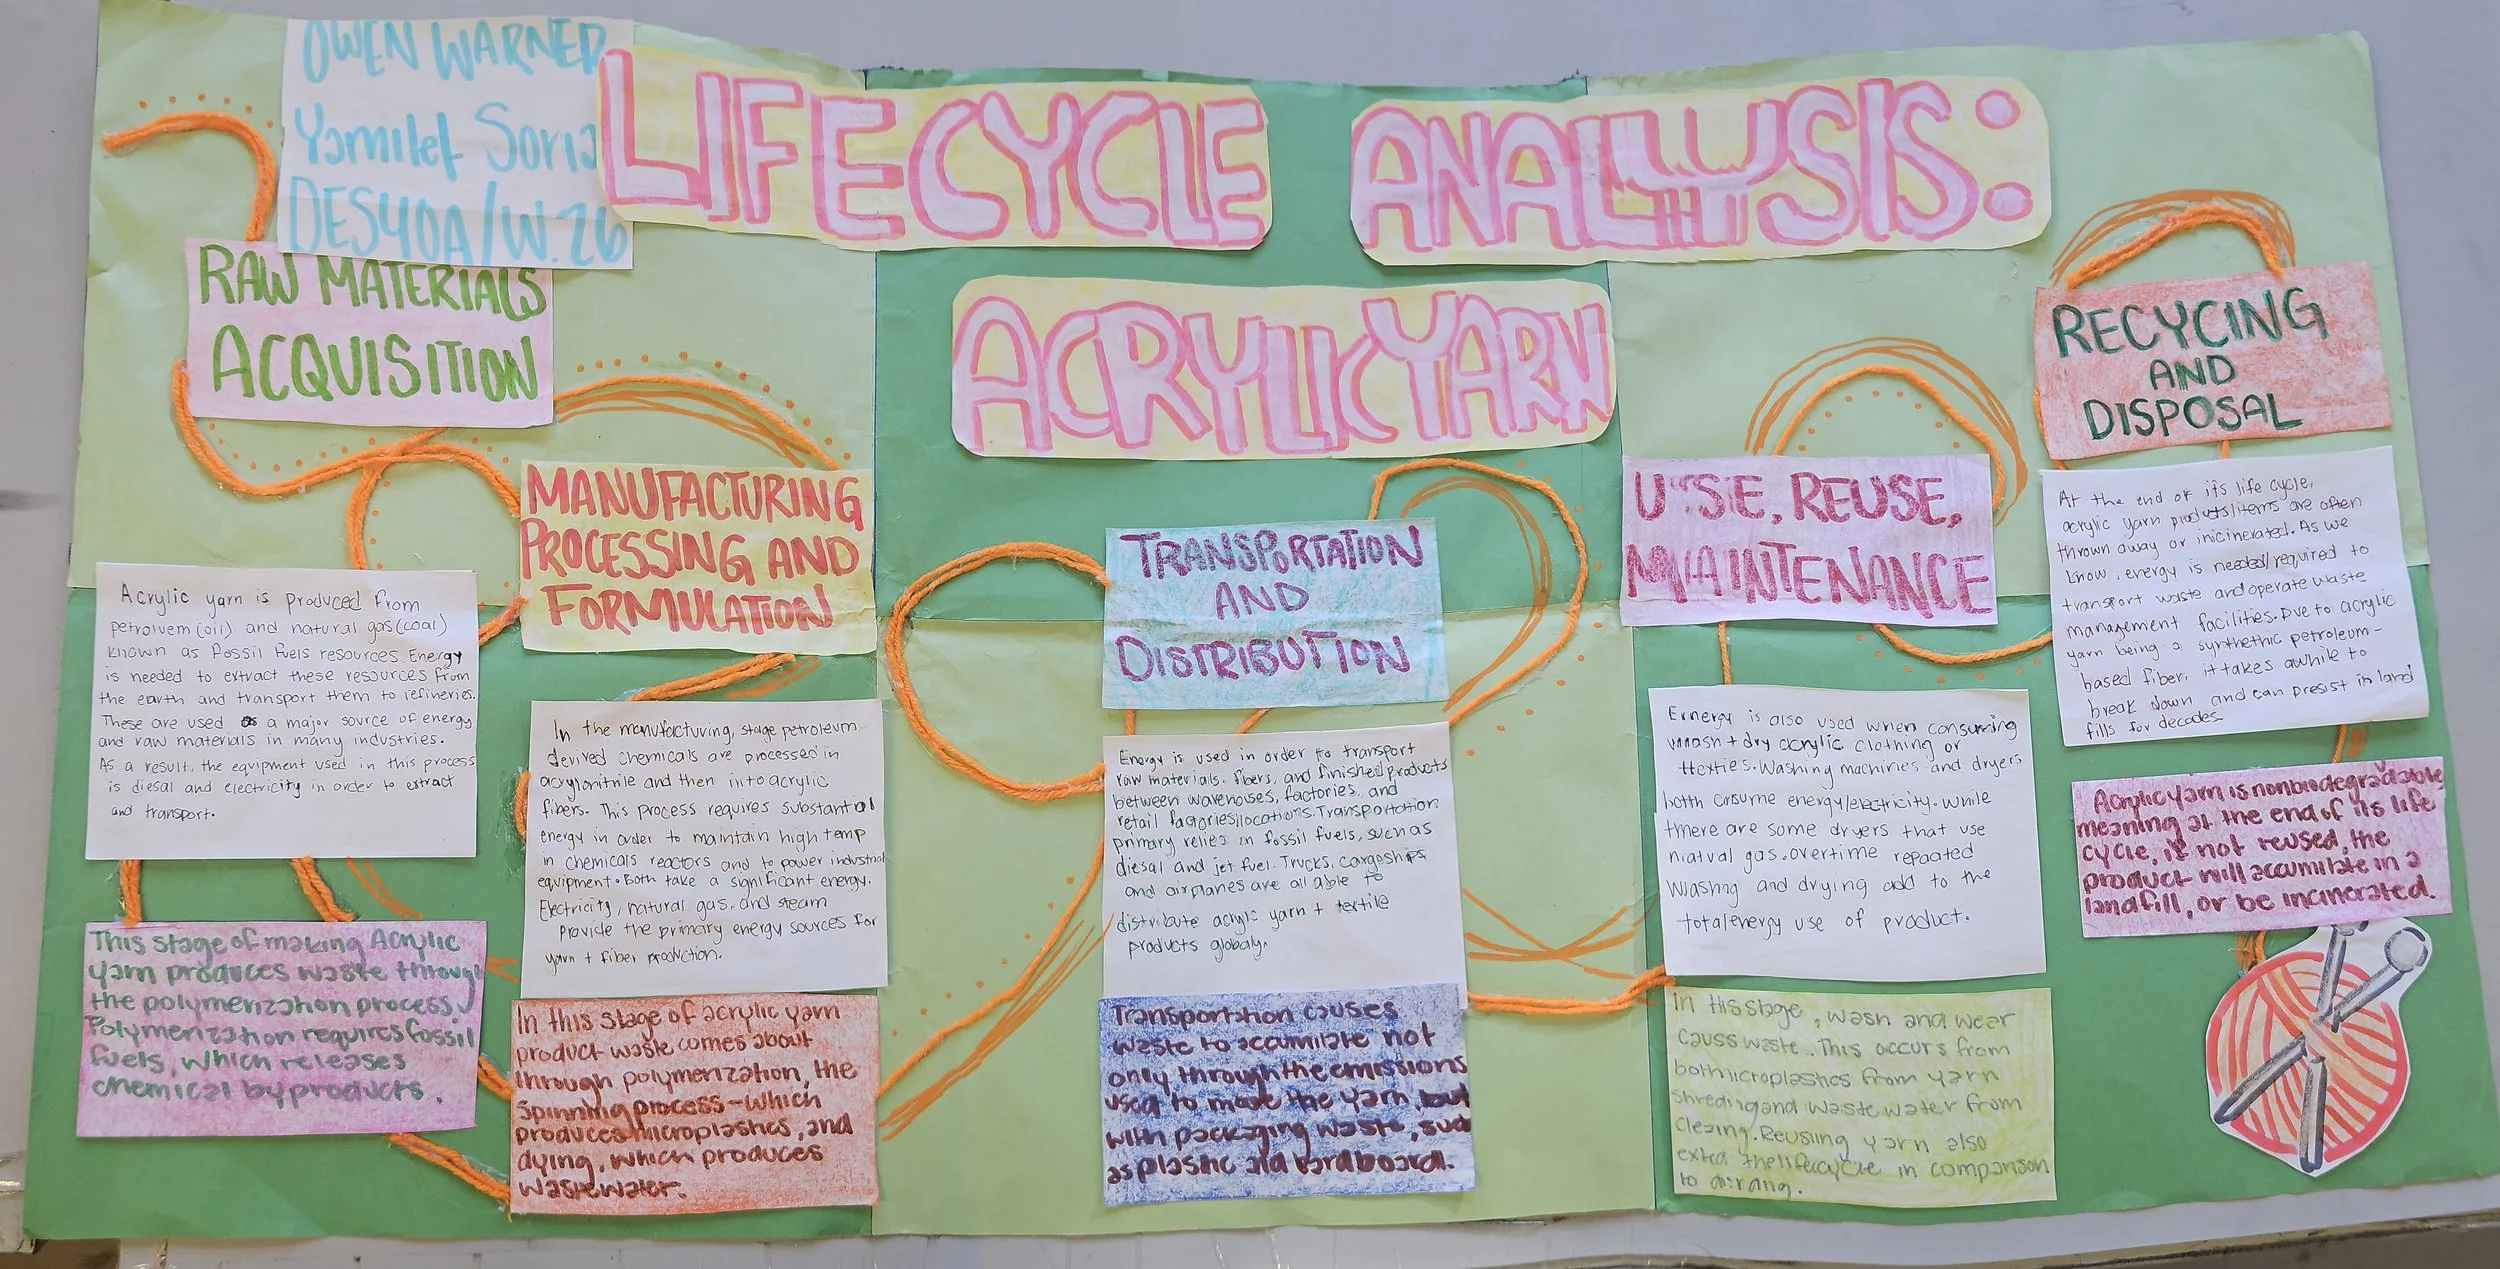 OWEN WARNER
Yamilet Soria
DES40A/W.26
LIFECYCLE ANALYSIS:
ACRYLIC YARN
RAW MATERIALS
ACQUISITION
Acrylic yarn is produced from
petroluem (oil) and natural gas (coal)
known as fossil fuels resources Energy
is needed to extract these resources from
the earth and transport them to refineries.
These are used as a major source of energy
and raw materials in many industries.
As a result, the equipment used in this process
is diesal and electricity in order to extract
and transport.
This stage of making Acrylic
yarn produces waste through
the polymerization process.
Polymerization requires fossil
fuels, which releases
chemical byproducts.
MANUFACTURING
PROCESSING AND
FORMULATION
In the manufactuving, stage petroleum
derived chemicals are processed in
acrylonitrile and then into acrylic
fibers. This process requires substantial
energy in order to maintain high temp
in chemicals reactors and to power industrial
equipment. Both take a significant energy.
Electricity, natural gas, and steam
provide the primary energy sources for
yarn + fiber production.
In this stage of acrylic yarn
product waste comes about
through polymerization, the
spinning process - which
produces microplastics, and
dying, which produces
wastewater.
TRANSPORTATION
AND
DISTRIBUTION
Energy is used in order to transport
raw materials, fibers, and finished products
between warehouses, factories, and
retail factories/locations. Transportation
primary relies in fossil fuels, such as
diesal and jet fuel. Trucks, cargoships
and airplanes are all able to
distribute acrylic yarn + textile
products globaly.
Transportation causes
waste to accumilate not
only through the emissions
used to move the yarn, but
with packaging waste, such
as plastic and cardboard.
USE, REUSE,
MAINTENANCE
Ennergy is also used when consuming
wash + dry acrylic clothing or
texties. Washing machines and dryers
both consume energy/electricity. While
there are some dryers that use
natual gas. overtime repaated
washng and drying add to the
total energy use of product.
In this stage, wash and wear
causs waste. This occurs from
both icroplastics from yarn
shreding and waste water from
cleaing. Reusiing yarn also
the lifecycle in comparison
to
RECYCING
AND
DISPOSAL
At the end of its life cycle,
acrylic yarn products/items are often
thrown away or inicinerated. As we
know, energy is needed/required to
transport waste and operate waste
management facilities. Due to acrylic
yarn being a synthethic petroleum-
based fiber, it takes awhile to
break down and can presist in land
fills for decades.
Acrylic yarn is nonbiodegradable
meaning at the end of its life
cycle, if not reused, the
product will accumilate in a
landfill, or be incinerated.